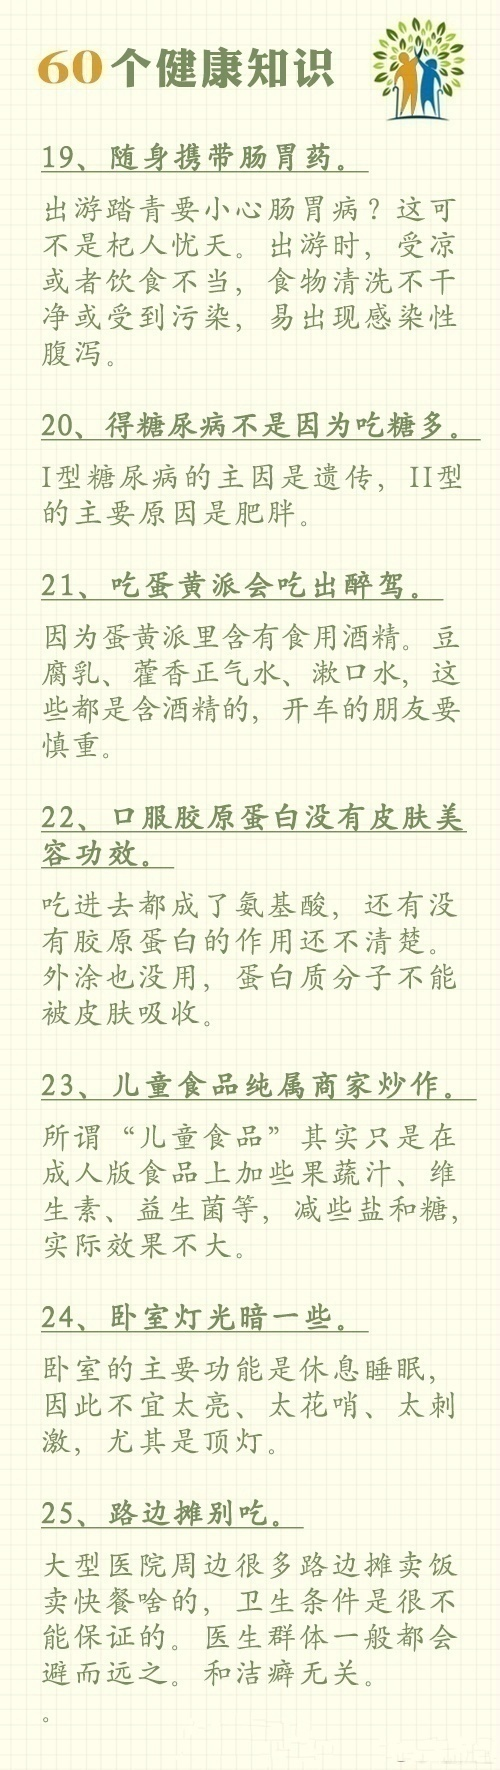 60个健康知识
19、随身携带肠胃药。
出游踏青要小心肠胃病？这可
不是杞人忧天。出游时，受凉
或者饮食不当，食物清洗不干
净或受到污染，易出现感染性
腹泻。
20、得糖尿病不是因为吃糖多。
I型糖尿病的主因是遗传，II型
的主要原因是肥胖。
21、吃蛋黄派会吃出醉驾。
因为蛋黄派里含有食用酒精。豆
腐乳、藿香正气水、漱口水，这
些都是含酒精的，开车的朋友要
慎重。
22、口服胶原蛋白没有皮肤美
容功效。
吃进去都成了氨基酸，还有没
有胶原蛋白的作用还不清楚。
外涂也没用，蛋白质分子不能
被皮肤吸收。
23、儿童食品纯属商家炒作。
所谓“儿童食品”其实只是在
成人版食品上加些果蔬汁、维
生素、益生菌等，减些盐和糖，
实际效果不大。
24、卧室灯光暗一些。
卧室的主要功能是休息睡眠，
因此不宜太亮、太花哨、太刺
激，尤其是顶灯。
25、路边摊别吃。
大型医院周边很多路边摊卖饭
卖快餐啥的，卫生条件是很不
能保证的。医生群体一般都会
避而远之。和洁癖无关。
。